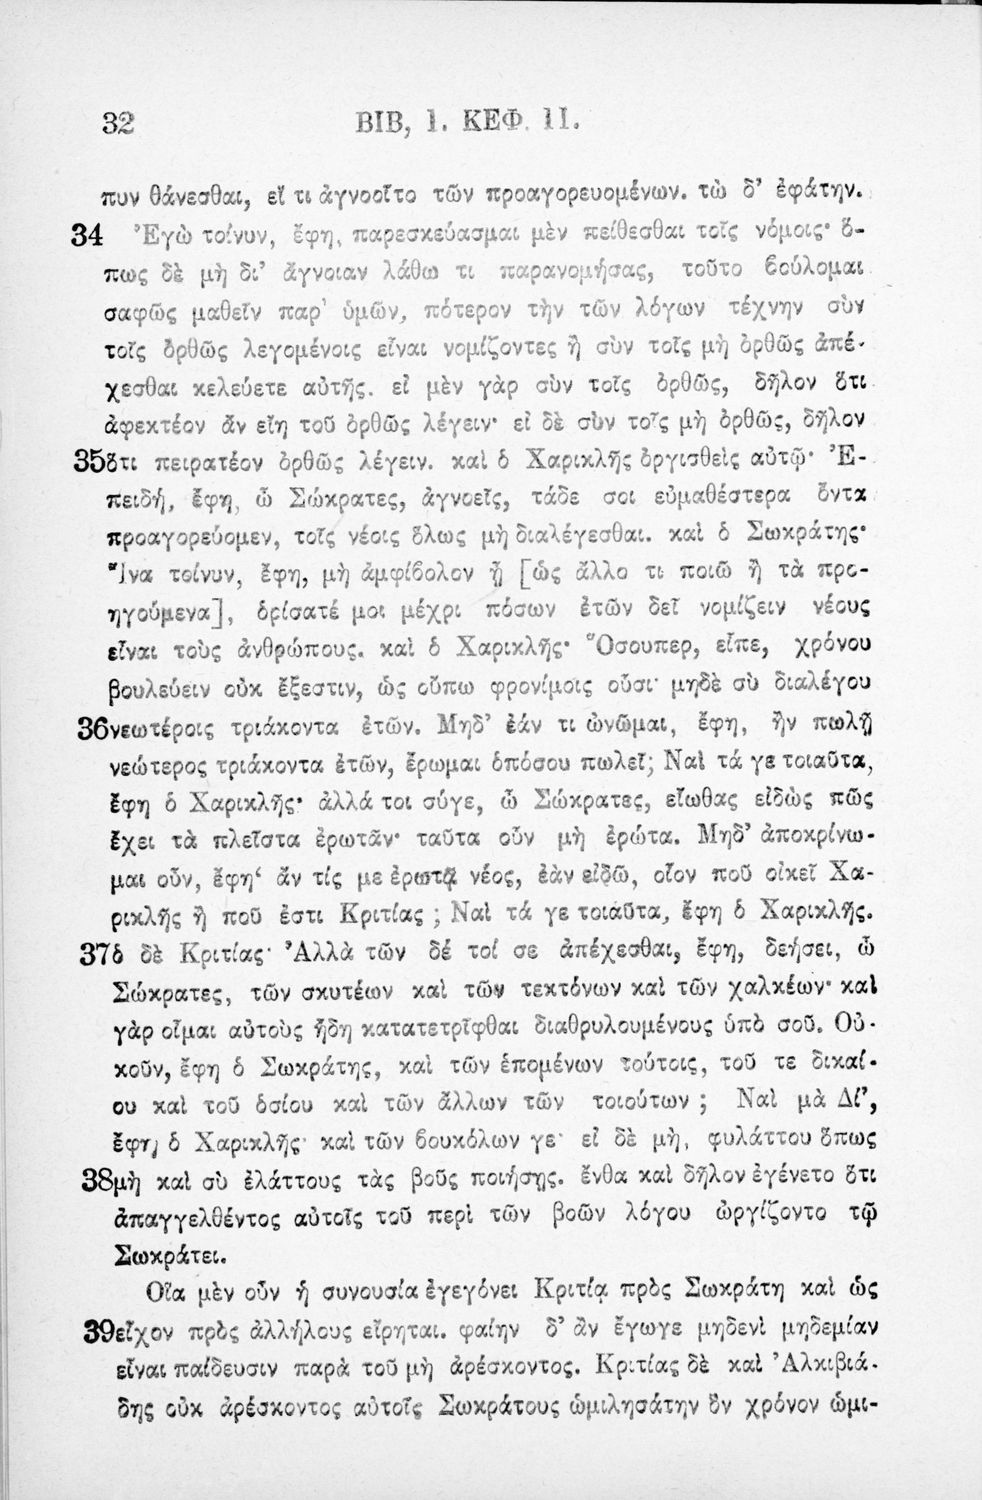 32 ΒΙΒ, 1. ΚΕΦ. 11.
πυν θάνεσθαι, εἴ τι ἀγνοοῖτο τῶν προαγορευομένων. τὼ δ’ ἐφάτην.
34 Ἐγὼ τοίνυν, ἔφη, παρεσκεύασμαι μὲν πείθεσθαι τοῖς νόμοις· ὅ-
πως δὲ μὴ δι’ ἄγνοιαν λάθω τι παρανομήσας, τοῦτο βούλομαι
σαφῶς μαθεῖν παρ’ ὑμῶν, πότερον τὴν τῶν λόγων τέχνην σὺν
τοῖς ὀρθῶς λεγομένοις εἶναι νομίζοντες ἢ σὺν τοῖς μὴ ὀρθῶς ἀπέ-
χεσθαι κελεύετε αὐτῆς. εἰ μὲν γὰρ σὺν τοῖς ὀρθῶς, δῆλον ὅτι
ἀφεκτέον ἂν εἴη τοῦ ὀρθῶς λέγειν· εἰ δὲ σὺν τοῖς μὴ ὀρθῶς, δῆλον
35ὅτι πειρατέον ὀρθῶς λέγειν. καὶ ὁ Χαρικλῆς ὀργισθεὶς αὐτῷ· Ἐ-
πειδή, ἔφη, ὦ Σώκρατες, ἀγνοεῖς, τάδε σοι εὐμαθέστερα ὄντα
προαγορεύομεν, τοῖς νέοις ὅλως μὴ διαλέγεσθαι. καὶ ὁ Σωκράτης·
Ἵνα τοίνυν, ἔφη, μὴ ἀμφίβολον ᾖ [ὡς ἄλλο τι ποιῶ ἢ τὰ προ-
ηγούμενα], ὁρίσατέ μοι μέχρι πόσων ἐτῶν δεῖ νομίζειν νέους
εἶναι τοὺς ἀνθρώπους. καὶ ὁ Χαρικλῆς· Ὅσουπερ, εἶπε, χρόνου
βουλεύειν οὐκ ἔξεστιν, ὡς οὔπω φρονίμοις οὖσι· μηδὲ σὺ διαλέγου
36νεωτέροις τριάκοντα ἐτῶν. Μηδ’ ἐάν τι ὠνῶμαι, ἔφη, ἢν πωλῇ
νεώτερος τριάκοντα ἐτῶν, ἔρωμαι ὁπόσου πωλεῖ; Ναὶ τά γε τοιαῦτα,
ἔφη ὁ Χαρικλῆς· ἀλλά τοι σύγε, ὦ Σώκρατες, εἴωθας εἰδὼς πῶς
ἔχει τὰ πλεῖστα ἐρωτᾶν· ταῦτα οὖν μὴ ἐρώτα. Μηδ’ ἀποκρίνω-
μαι οὖν, ἔφη‘ ἄν τίς με ἐρωτᾷ νέος, ἐὰν εἰδῶ, οἷον ποῦ οἰκεῖ Χα-
ρικλῆς ἢ ποῦ ἐστι Κριτίας ; Ναὶ τά γε τοιαῦτα, ἔφη ὁ Χαρικλῆς.
37ὁ δὲ Κριτίας· Ἀλλὰ τῶν δέ τοί σε ἀπέχεσθαι, ἔφη, δεήσει, ὦ
Σώκρατες, τῶν σκυτέων καὶ τῶν τεκτόνων καὶ τῶν χαλκέων· καὶ
γὰρ οἶμαι αὐτοὺς ἤδη κατατετρῖφθαι διαθρυλουμένους ὑπὸ σοῦ. Οὐ-
κοῦν, ἔφη ὁ Σωκράτης, καὶ τῶν ἑπομένων τούτοις, τοῦ τε δικαί-
ου καὶ τοῦ ὁσίου καὶ τῶν ἄλλων τῶν τοιούτων ; Ναὶ μὰ Δί’,
ἔφη ὁ Χαρικλῆς· καὶ τῶν βουκόλων γε· εἰ δὲ μὴ, φυλάττου ὅπως
38μὴ καὶ σὺ ἐλάττους τὰς βοῦς ποιήσῃς. ἔνθα καὶ δῆλον ἐγένετο ὅτι
ἀπαγγελθέντος αὐτοῖς τοῦ περὶ τῶν βοῶν λόγου ὠργίζοντο τῷ
Σωκράτει.
Οἵα μὲν οὖν ἡ συνουσία ἐγεγόνει Κριτίᾳ πρὸς Σωκράτη καὶ ὡς
39εἶχον πρὸς ἀλλήλους εἴρηται. φαίην δ’ ἂν ἔγωγε μηδενὶ μηδεμίαν
εἶναι παίδευσιν παρὰ τοῦ μὴ ἀρέσκοντος. Κριτίας δὲ καὶ Ἀλκιβιά-
δης οὐκ ἀρέσκοντος αὐτοῖς Σωκράτους ὡμιλησάτην ὃν χρόνον ὡμι-